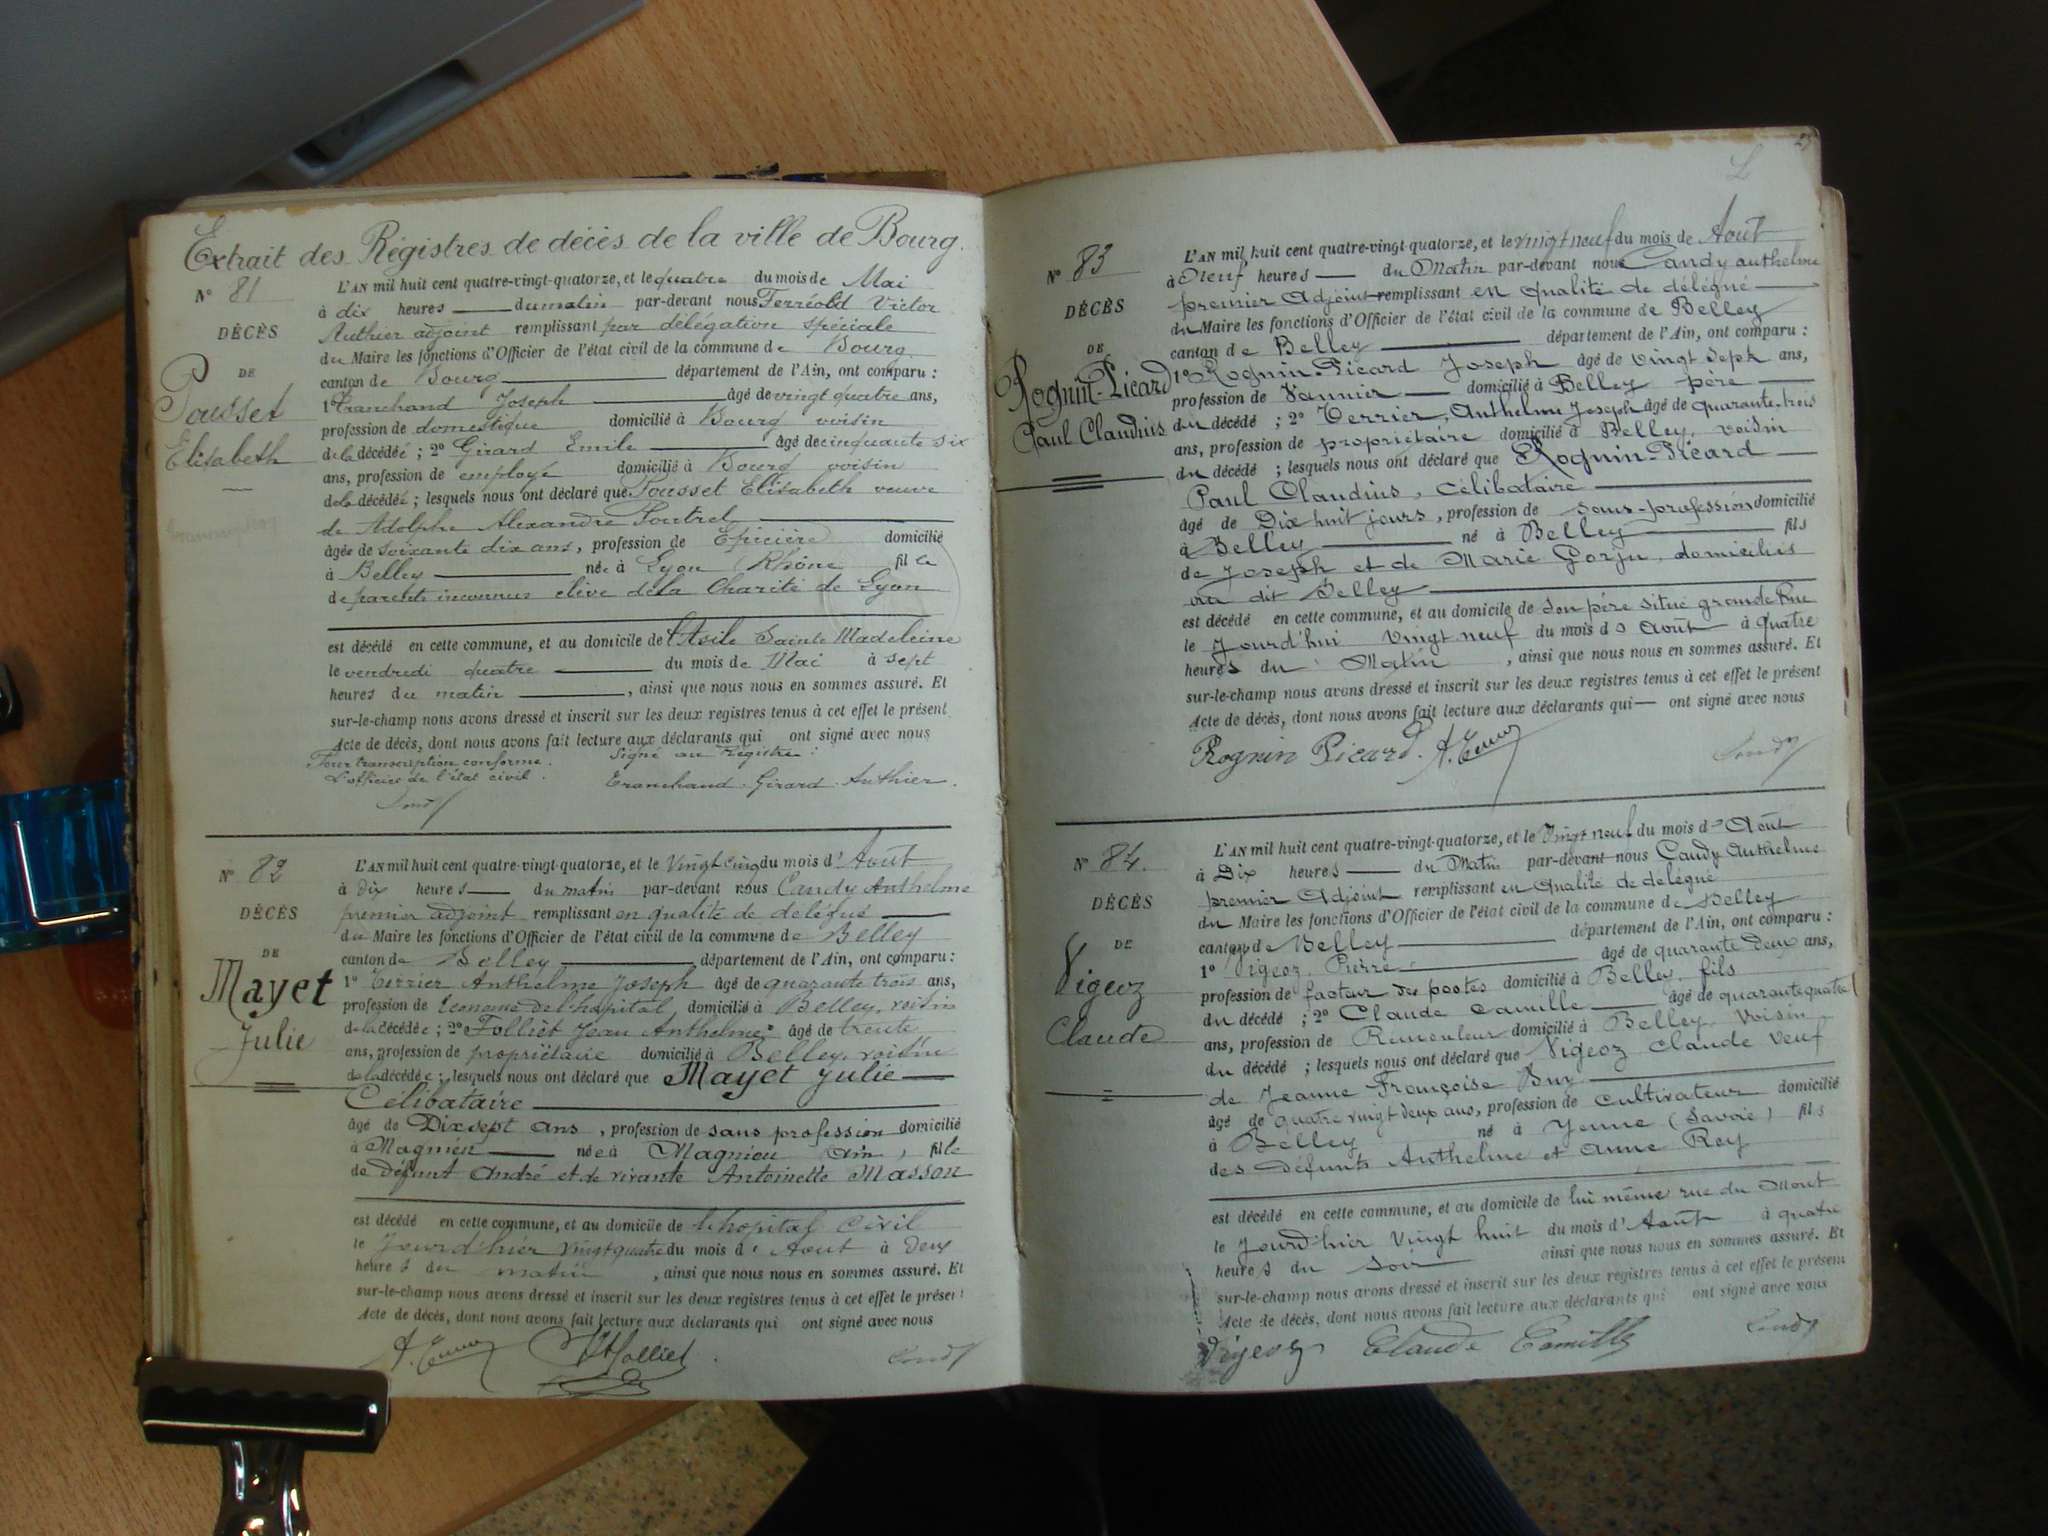 Extrait des Régistres de décès de la ville de Bourg.
N° 81
DÉCÈS
DE
Pousset
Elisabeth
L'AN mil huit cent quatre-vingt-quatorze, et le quatre du mois de Mai
à dix heures du matin par-devant nous Ferréold Victor
Authier adjoint remplissant par délégation spéciale
du Maire les fonctions d'Officier de l'état civil de la commune de Bourg
canton de Bourg département de l'Ain, ont comparu :
1° Tranchand Joseph âgé de vingt quatre ans,
profession de domestique domicilié à Bourg voisin
de la décédée ; 2° Girard Emile âgé de cinquante six
ans, profession de employé domicilié à Bourg voisin
de la décédée ; lesquels nous ont déclaré que Pousset Elisabeth veuve
de Adolphe Alexandre Poutret
âgée de soixante dix ans, profession de Epicière domicilié
à Belley née à Lyon (Rhône fille
de parents inconnus élève de la Charité de Lyon
est décédé en cette commune, et au domicile de l'Asile Sainte Madeleine
le vendredi quatre du mois de Mai à sept
heures du matin, ainsi que nous nous en sommes assuré. Et
sur-le-champ nous avons dressé et inscrit sur les deux registres tenus à cet effet le présent
Acte de décès, dont nous avons fait lecture aux déclarants qui ont signé avec nous
Pour transcription conforme. Signé au Régistre :
L'officier de l'état civil. Tranchand. Girard. Authier.
N° 82
DÉCÈS
DE
Mayet
Julie
L'AN mil huit cent quatre-vingt-quatorze, et le Vingt cinq du mois d'Août
à dix heures du matin par-devant nous Candy Anthelme
premier adjoint remplissant en qualité de délégué
du Maire les fonctions d'Officier de l'état civil de la commune de Belley
canton de Belley département de l'Ain, ont comparu :
1° Terrier Anthelme Joseph âgé de quarante trois ans,
profession de Econome de l'hopital domicilié à Belley, voisin
de la décédée ; 2° Folliet Jean Anthelme âgé de trente
ans, profession de propriétaire domicilié à Belley, voisin
de la décédée ; lesquels nous ont déclaré que Mayet Julie
Célibataire
âgé de Dix sept ans, profession de sans profession domicilié
à Magnieu née à Magnieu Ain, fille
de Défunt André et de vivante Antoinette Masson
est décédé en cette commune, et au domicile de l'hopital Civil
le Jourd'hier vingt quatre du mois d'Aout à Deux
heures du matin, ainsi que nous nous en sommes assuré. Et
sur-le-champ nous avons dressé et inscrit sur les deux registres tenus à cet effet le présent
Acte de décès, dont nous avons fait lecture aux déclarants qui ont signé avec nous
N° 83
DÉCÈS
DE
Rognin-Picard
Paul Claudius
L'AN mil huit cent quatre-vingt-quatorze, et le vingt neuf du mois de Aout
à Neuf heures du Matin par-devant nous Candy anthelme
premier Adjoint remplissant en qualité de délégué
du Maire les fonctions d'Officier de l'état civil de la commune de Belley
canton de Belley département de l'Ain, ont comparu :
1° Rognin-Picard Joseph âgé de vingt sept ans,
profession de Vannier domicilié à Belley père
du décédé ; 2° Terrier, Anthelme Joseph âgé de quarante-trois
ans, profession de propriétaire domicilié à Belley, voisin
du décédé ; lesquels nous ont déclaré que Rognin-Picard
Paul Claudius, Célibataire
âgé de Dix huit jours, profession de sans-profession domicilié
à Belley né à Belley fils
de Joseph et de Marie Gorju, domiciliés
au dit Belley
est décédé en cette commune, et au domicile de son père situé grande Rue
le Jourd'hui vingt neuf du mois d Août à quatre
heures du Matin, ainsi que nous nous en sommes assuré. Et
sur-le-champ nous avons dressé et inscrit sur les deux registres tenus à cet effet le présent
Acte de décès, dont nous avons fait lecture aux déclarants qui ont signé avec nous
Rognin Picard.
N° 84.
DÉCÈS
DE
Vigeoz
Claude
L'AN mil huit cent quatre-vingt-quatorze, et le Vingt neuf du mois d'Août
à Dix heures du Matin par-devant nous Candy Anthelme
premier Adjoint remplissant en Qualité de délégué
du Maire les fonctions d'Officier de l'état civil de la commune de Belley
canton de Belley département de l'Ain, ont comparu :
1° Vigeoz Pierre âgé de quarante Deux ans,
profession de facteur des postes domicilié à Belley, fils
du décédé ; 2° Claude Camille âgé de quarante quatre
ans, profession de Remouleur domicilié à Belley, Voisin
du décédé ; lesquels nous ont déclaré que Vigeoz Claude Veuf
de Jeanne Françoise Buy
âgé de quatre vingt deux ans, profession de cultivateur domicilié
à Belley né à Yenne (Savoie) fils
des Défunts Anthelme et Anne Rey
est décédé en cette commune, et au domicile de lui même rue du Mont
le Jourd'hier vingt huit du mois d'Août à quatre
heures du Soir ainsi que nous nous en sommes assuré. Et
sur-le-champ nous avons dressé et inscrit sur les deux registres tenus à cet effet le présent
Acte de décès, dont nous avons fait lecture aux déclarants qui ont signé avec nous
Vigeoz Claude Camille Candy